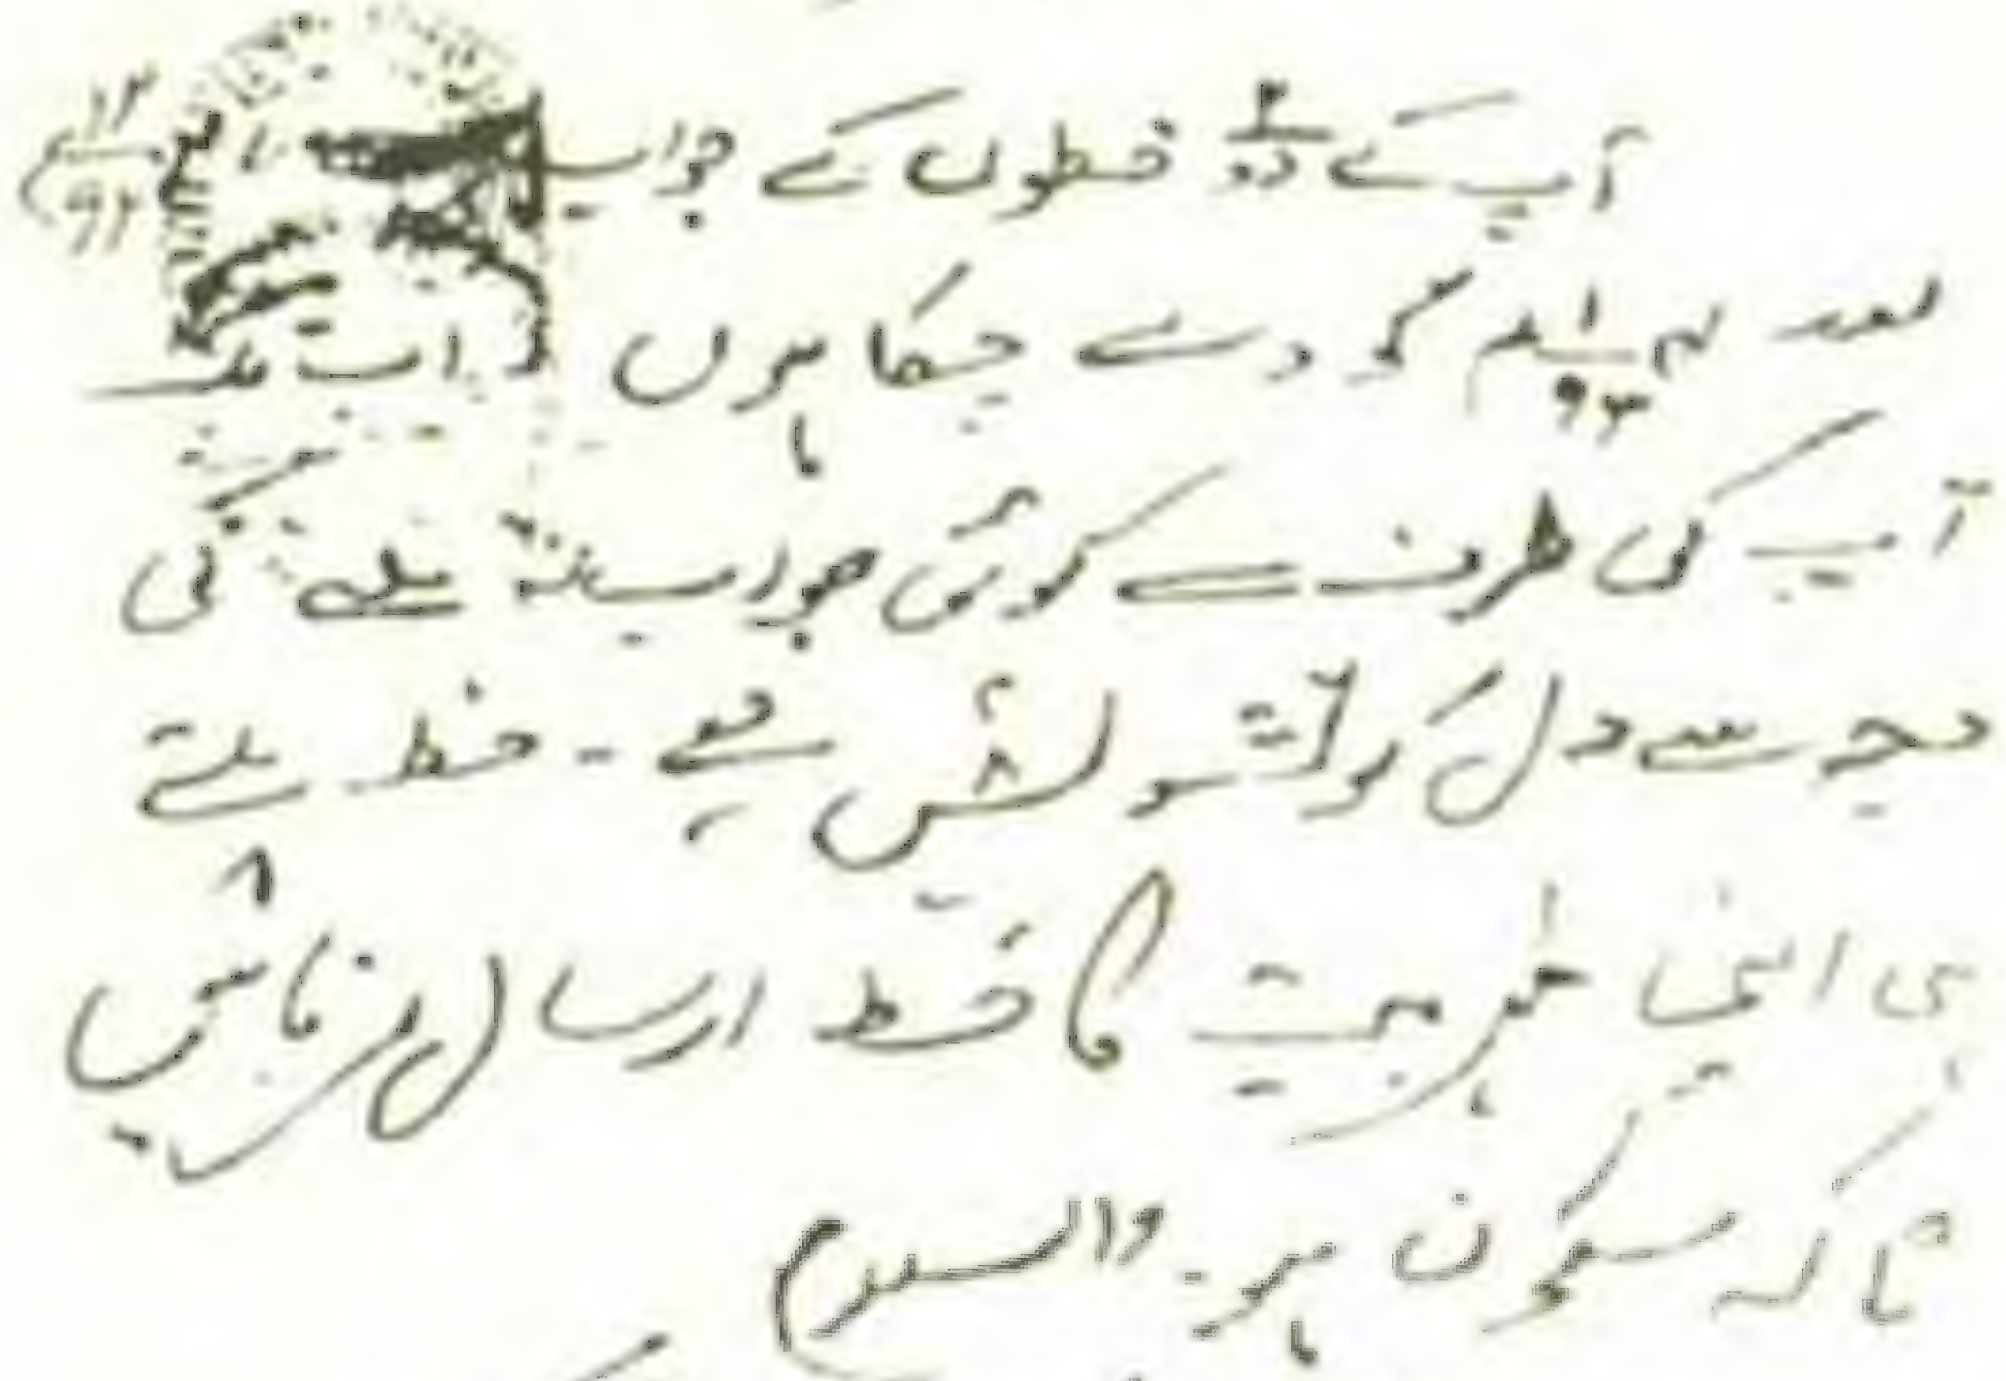 آپ کے ۲ دو خطوں کے جواب
کو دے چکا ہوں اب تک
آپ کی طرف سے کوئی جواب نہ ملنے کی
وجہ سے دل کو تشویش ہے - خط ملتے
ہی اپنی خیریت کا خط ارسال فرمائیں
تاکہ سکون ہو - والسلام